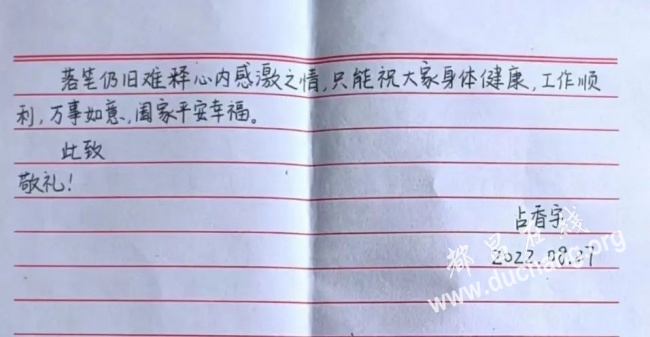 落笔仍旧难释心内感激之情,只能祝大家身体健康,工作顺
利,万事如意,阖家平安幸福。
此致
敬礼!
占香宇
2022.08.27
都昌在线
www.duchang.org